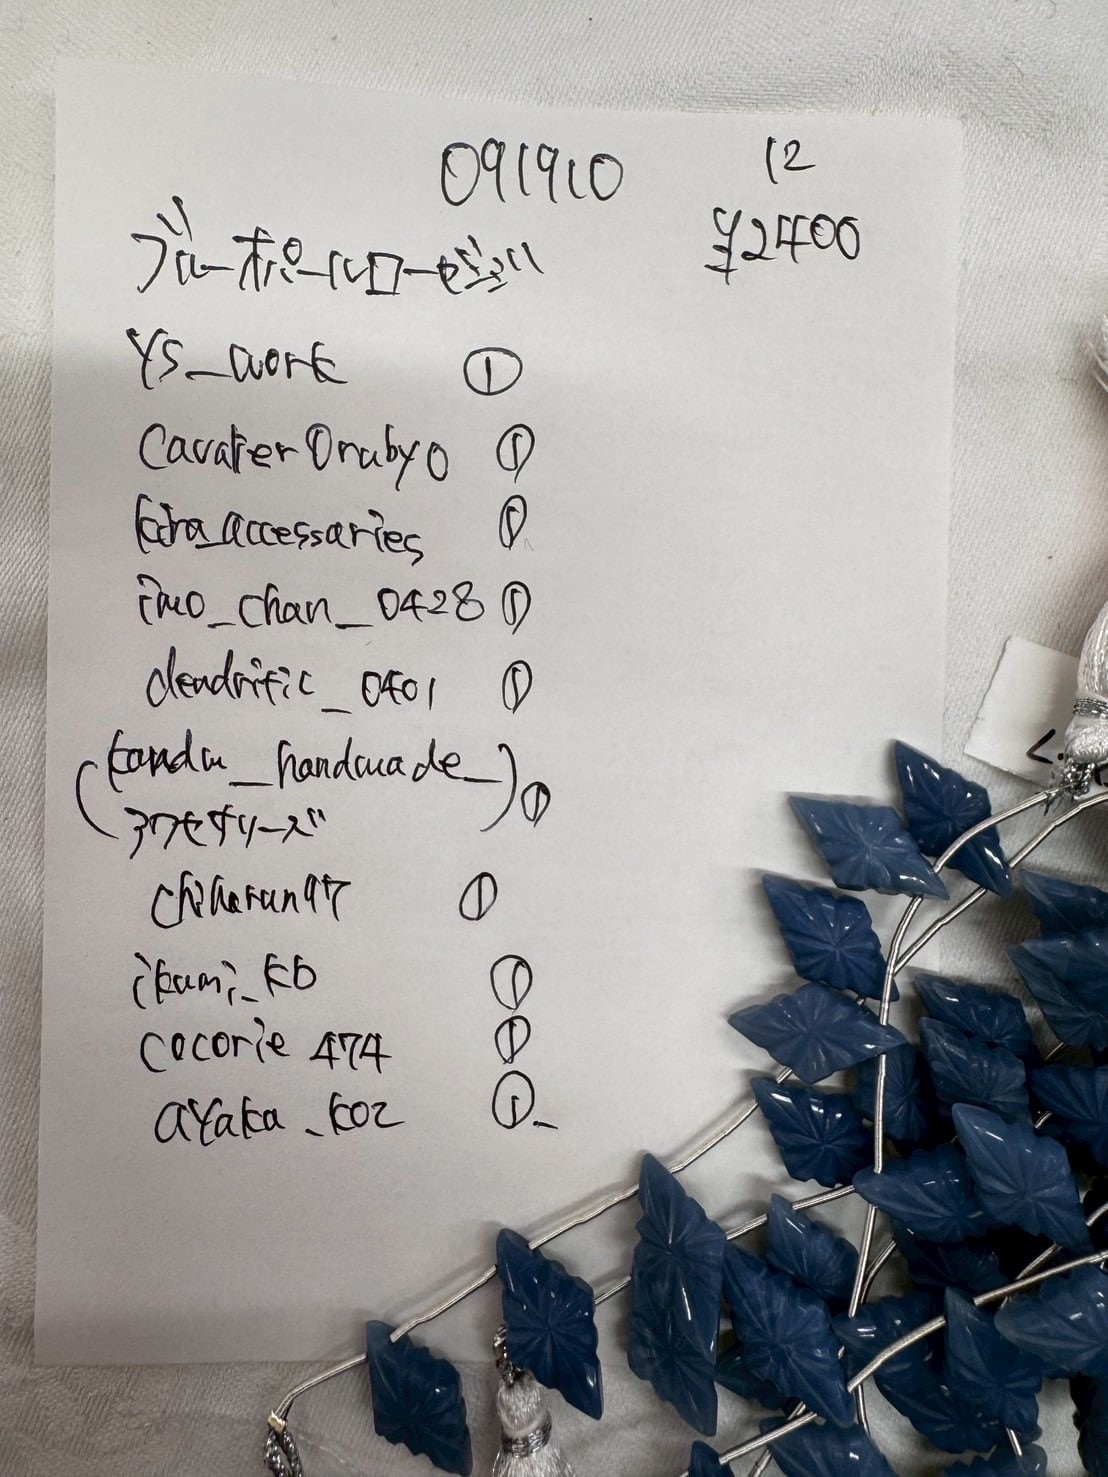 091910
12
¥2400
ys_work ①
Cavalier0ruby0 ①
kira_accessaries ①
imo_chan_0428 ①
dendritic_0401 ①
_handmade_ ①
アクセサリーズ
chiharun97 ①
ikumi_kb ①
cocorie 474 ①
ayaka_koz ①